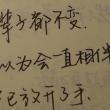 辈子都不变.
以为会一直相伴
已放开了手.